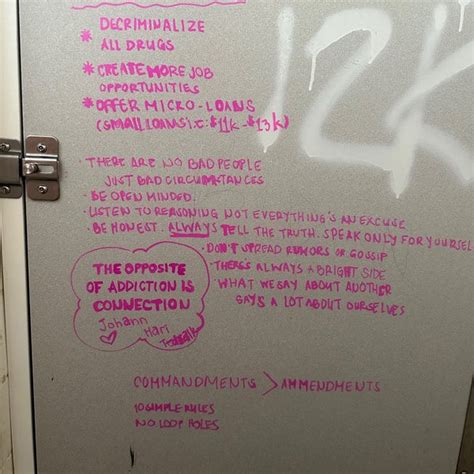 DECRIMINALIZE
* ALL DRUGS
* CREATE MORE JOB
OPPORTUNITIES
* OFFER MICRO-LOANS
(SMALL LOANS i.e: $11K-$13K)
12K
· THERE ARE NO BAD PEOPLE
JUST BAD CIRCUMSTANCES
· BE OPEN MINDED.
· LISTEN TO REASONING NOT EVERYTHING'S AN EXCUSE
· BE HONEST. ALWAYS TELL THE TRUTH. SPEAK ONLY FOR YOURSEL
· DON'T SPREAD RUMORS OR GOSSIP
· THERE'S ALWAYS A BRIGHT SIDE
WHAT WE SAY ABOUT ANOTHER
SAYS A LOT ABOUT OURSELVES
THE OPPOSITE
OF ADDICTION IS
CONNECTION
Johann
Hari
COMMANDMENTS > AMMENDMENTS
10 SIMPLE RULES
NO LOOP HOLES